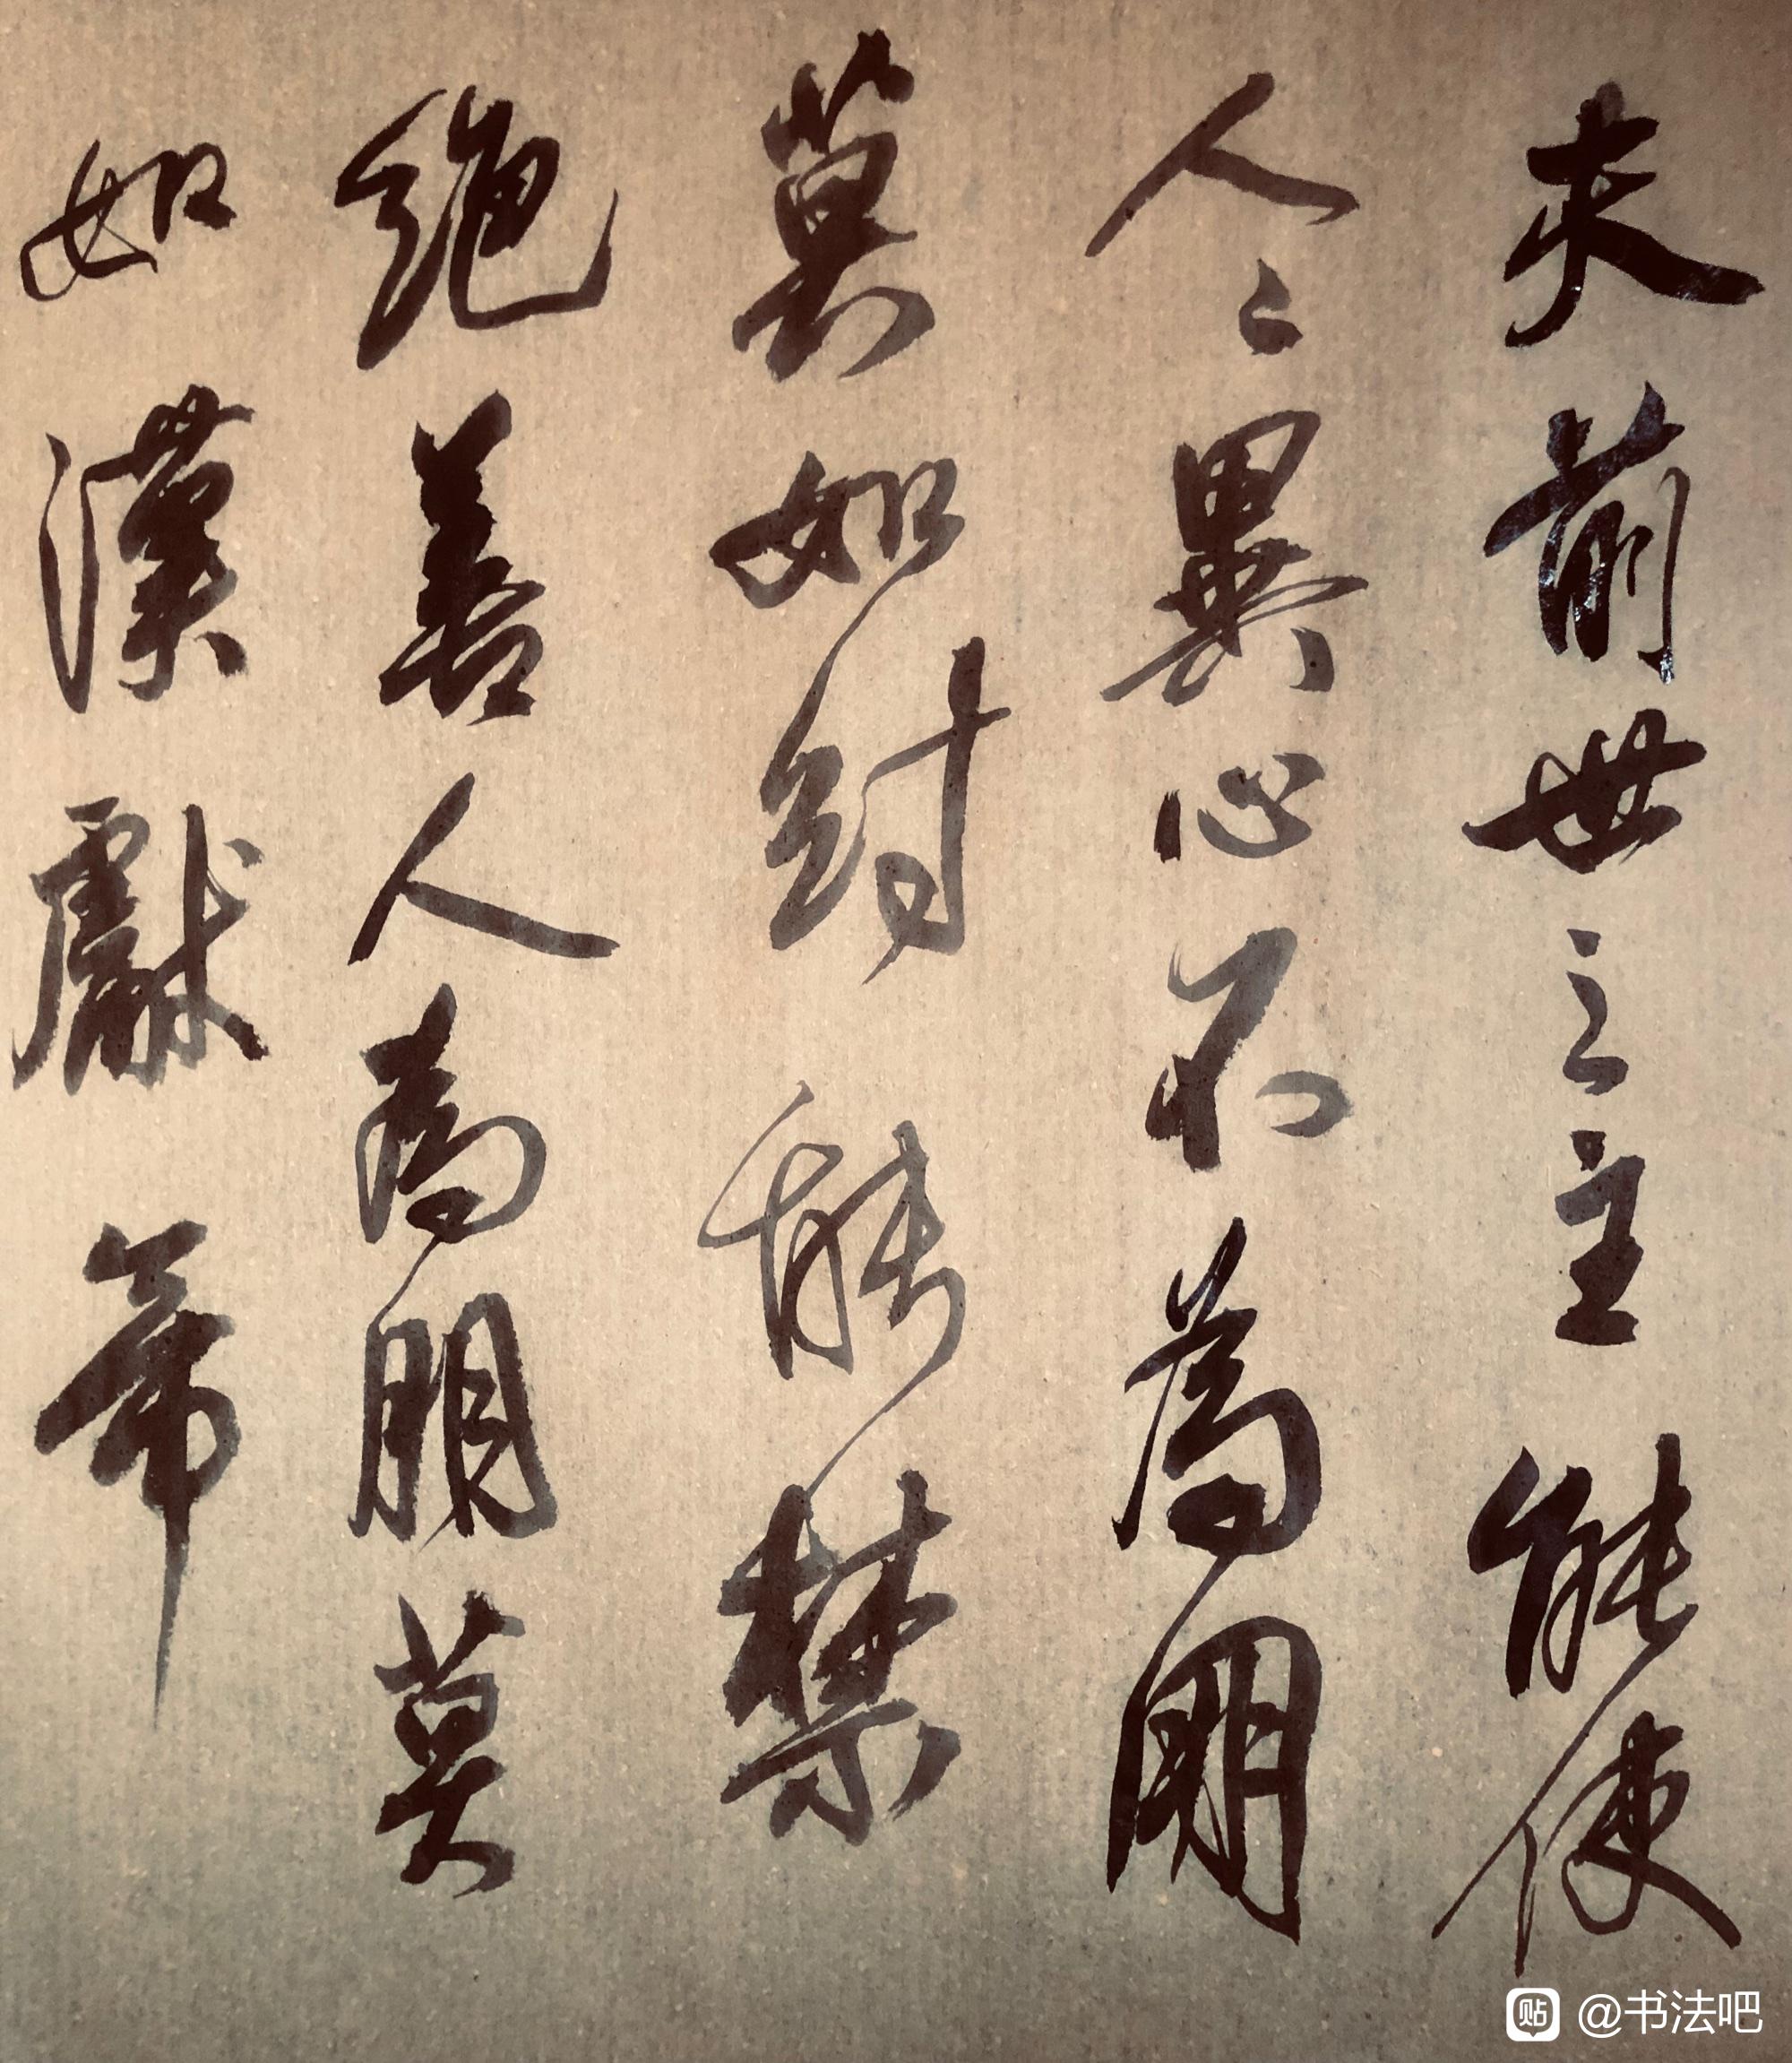 夫前世之主能使
人々異心不為朋
莫如紂能禁
絶善人為朋莫
如漢獻帝
贴 @书法吧